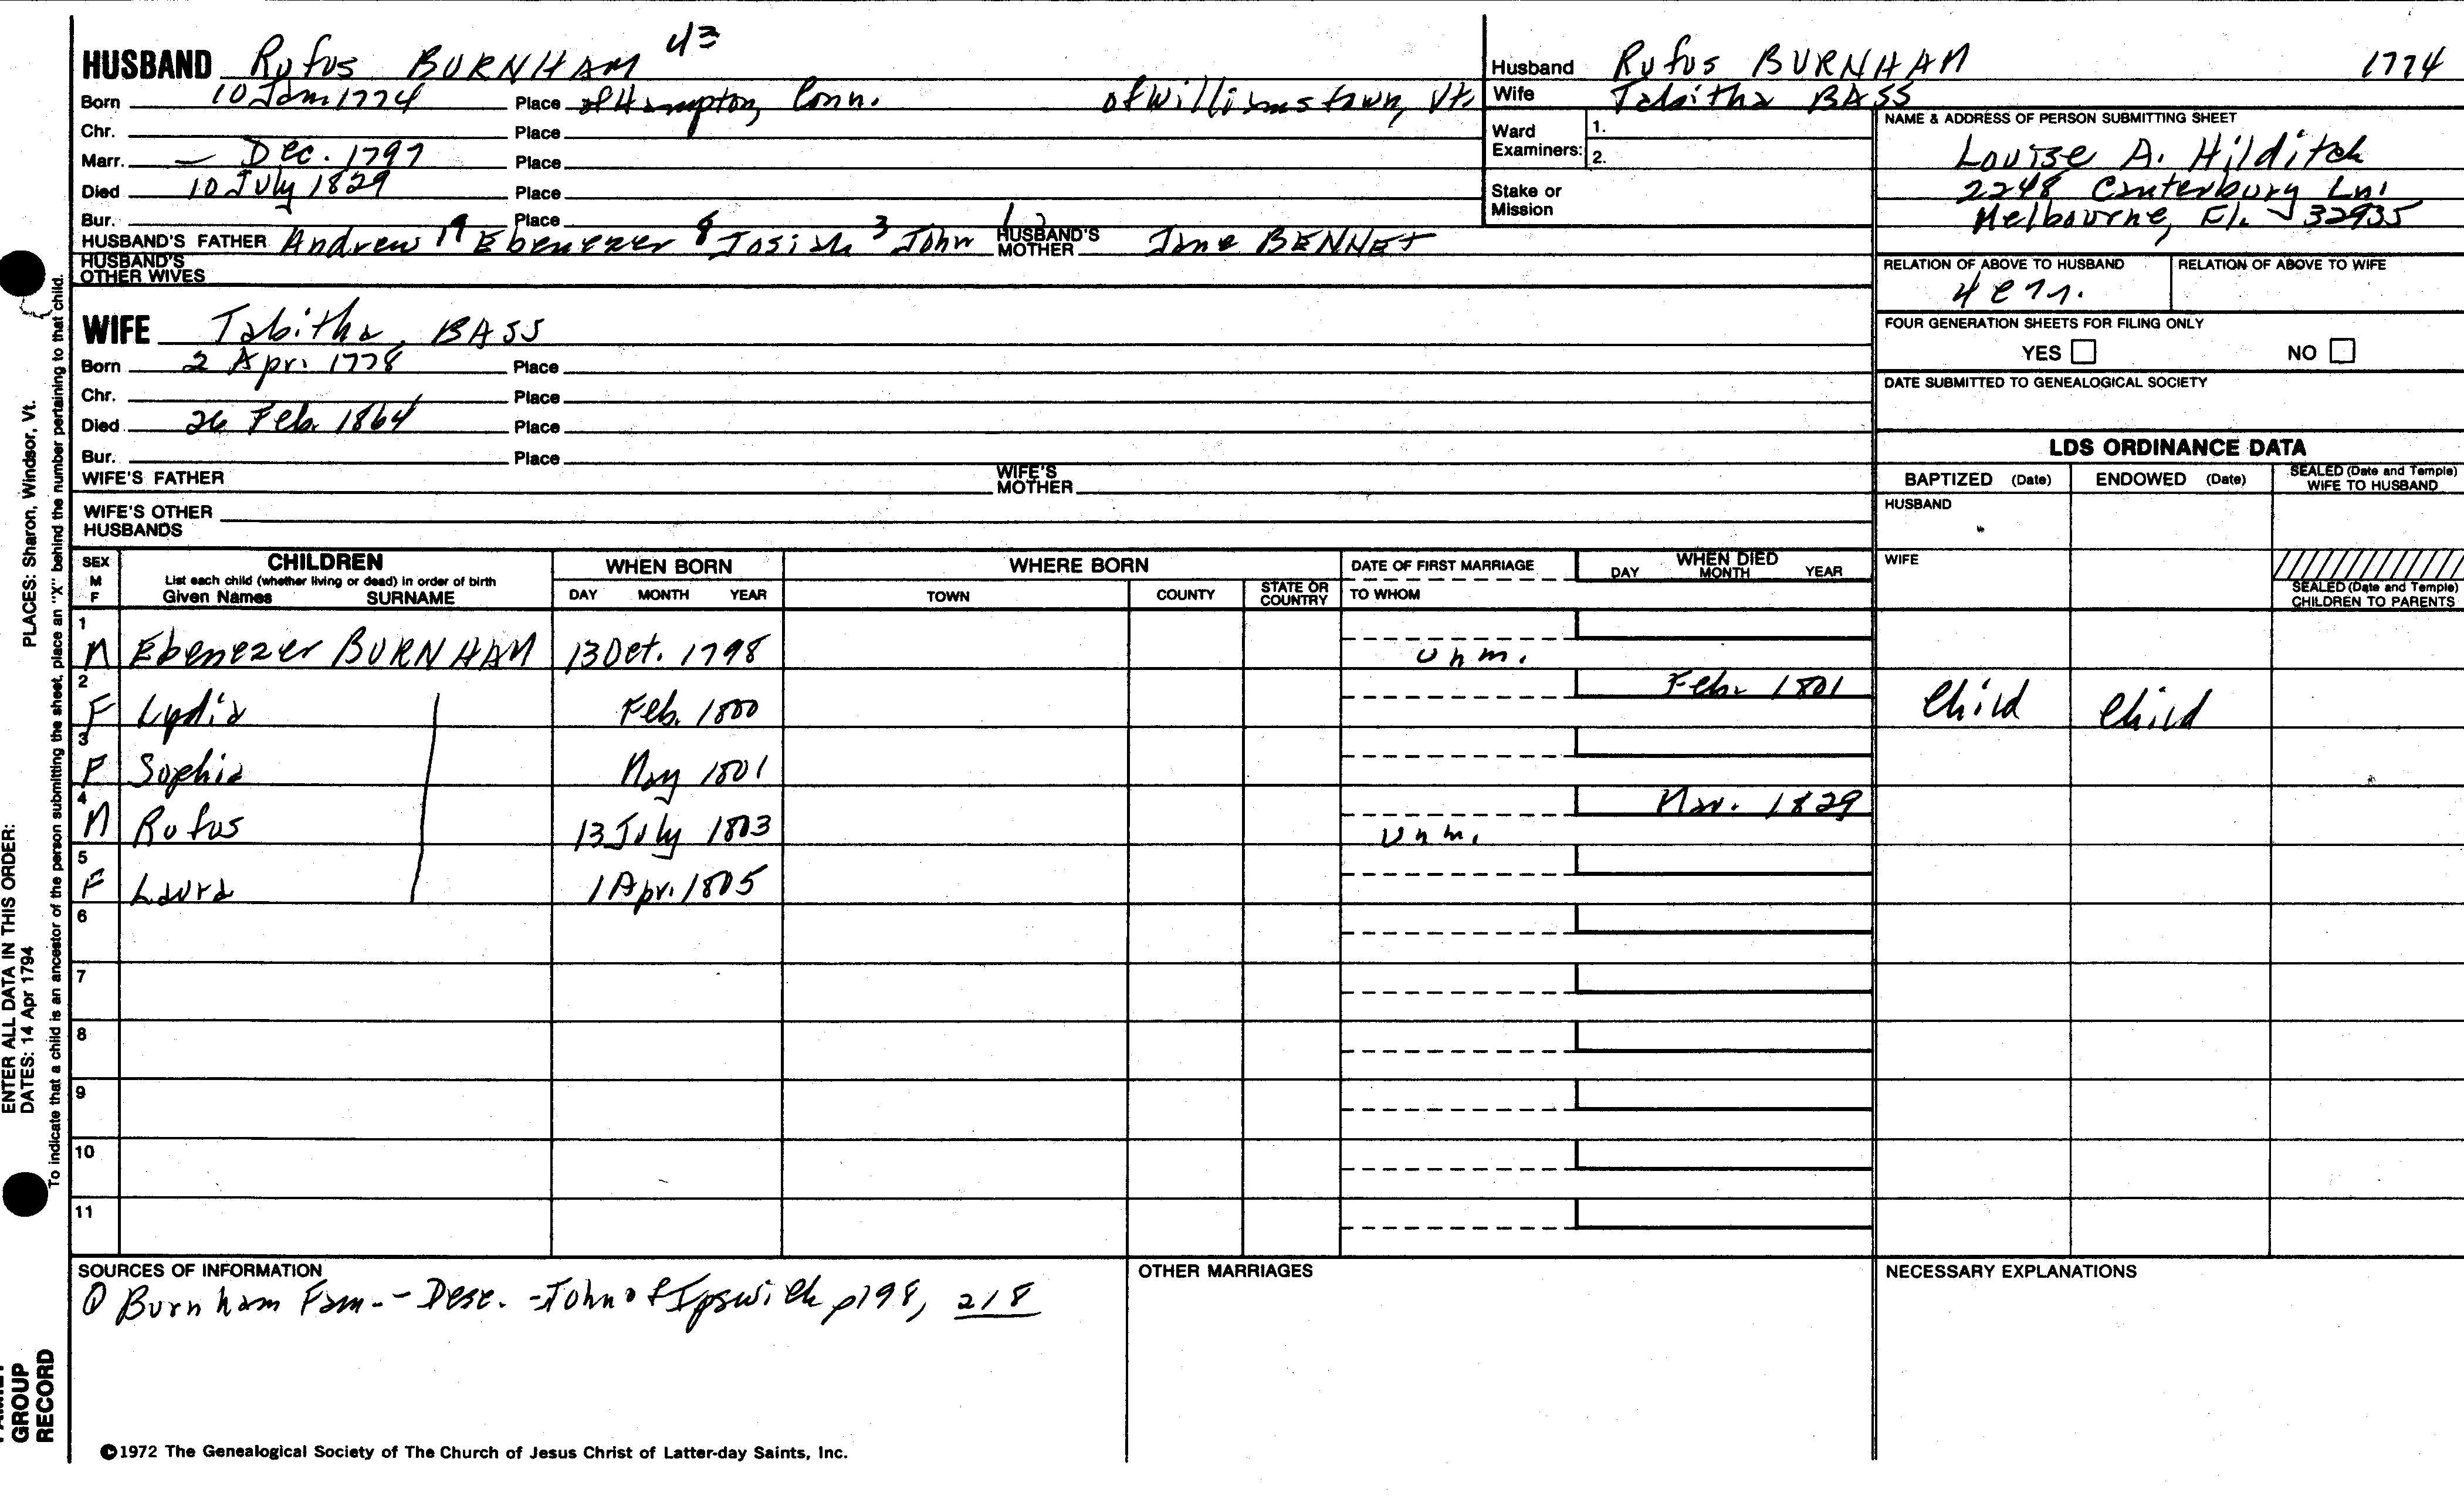 HUSBAND Rufus BURNHAM 43
Born 10 Jan 1774 Place of Hampton, Conn. of Williamstown, Vt.
Chr. Place
Marr. — Dec. 1797 Place
Died 10 July 1829 Place
Bur. Place
HUSBAND'S FATHER Andrew 19 Ebenezer 8 Josiah 3 John 1 HUSBAND'S MOTHER Jane BENNET
HUSBAND'S OTHER WIVES
WIFE Tabitha BASS
Born 2 Apr. 1778 Place
Chr. Place
Died 26 Feb. 1864 Place
Bur. Place
WIFE'S FATHER WIFE'S MOTHER
WIFE'S OTHER HUSBANDS
Husband Rufus BURNHAM 1774
Wife Tabitha BASS
Ward Examiners: 1.
2.
Stake or Mission
NAME & ADDRESS OF PERSON SUBMITTING SHEET
Louise A. Hilditch
2248 Canterbury Ln.
Melbourne, Fl. 32935
RELATION OF ABOVE TO HUSBAND RELATION OF ABOVE TO WIFE
FOUR GENERATION SHEETS FOR FILING ONLY
YES NO
DATE SUBMITTED TO GENEALOGICAL SOCIETY
LDS ORDINANCE DATA
BAPTIZED (Date) ENDOWED (Date) SEALED (Date and Temple) WIFE TO HUSBAND
HUSBAND
WIFE
SEALED (Date and Temple) CHILDREN TO PARENTS
SEX M F CHILDREN WHEN BORN WHERE BORN DATE OF FIRST MARRIAGE WHEN DIED
List each child (whether living or dead) in order of birth
Given Names SURNAME DAY MONTH YEAR TOWN COUNTY STATE OR COUNTRY TO WHOM DAY MONTH YEAR
1 M Ebenezer BURNHAM 13 Oct. 1798 unm.
2 F Lydia Feb. 1800 Feb. 1801 Child Child
3 F Sophia May 1801
4 M Rufus 13 July 1803 unm. Mar. 1829
5 F Laura 1 Apr. 1805
6
7
8
9
10
11
SOURCES OF INFORMATION
① Burnham Fam. - Desc. - John of Ipswich p198, 218
OTHER MARRIAGES
NECESSARY EXPLANATIONS
©1972 The Genealogical Society of The Church of Jesus Christ of Latter-day Saints, Inc.
ENTER ALL DATA IN THIS ORDER:
DATES: 14 Apr 1794 PLACES: Sharon, Windsor, Vt.
To indicate that a child is an ancestor of the person submitting the sheet, place an "X" behind the number pertaining to that child.
GROUP
RECORD